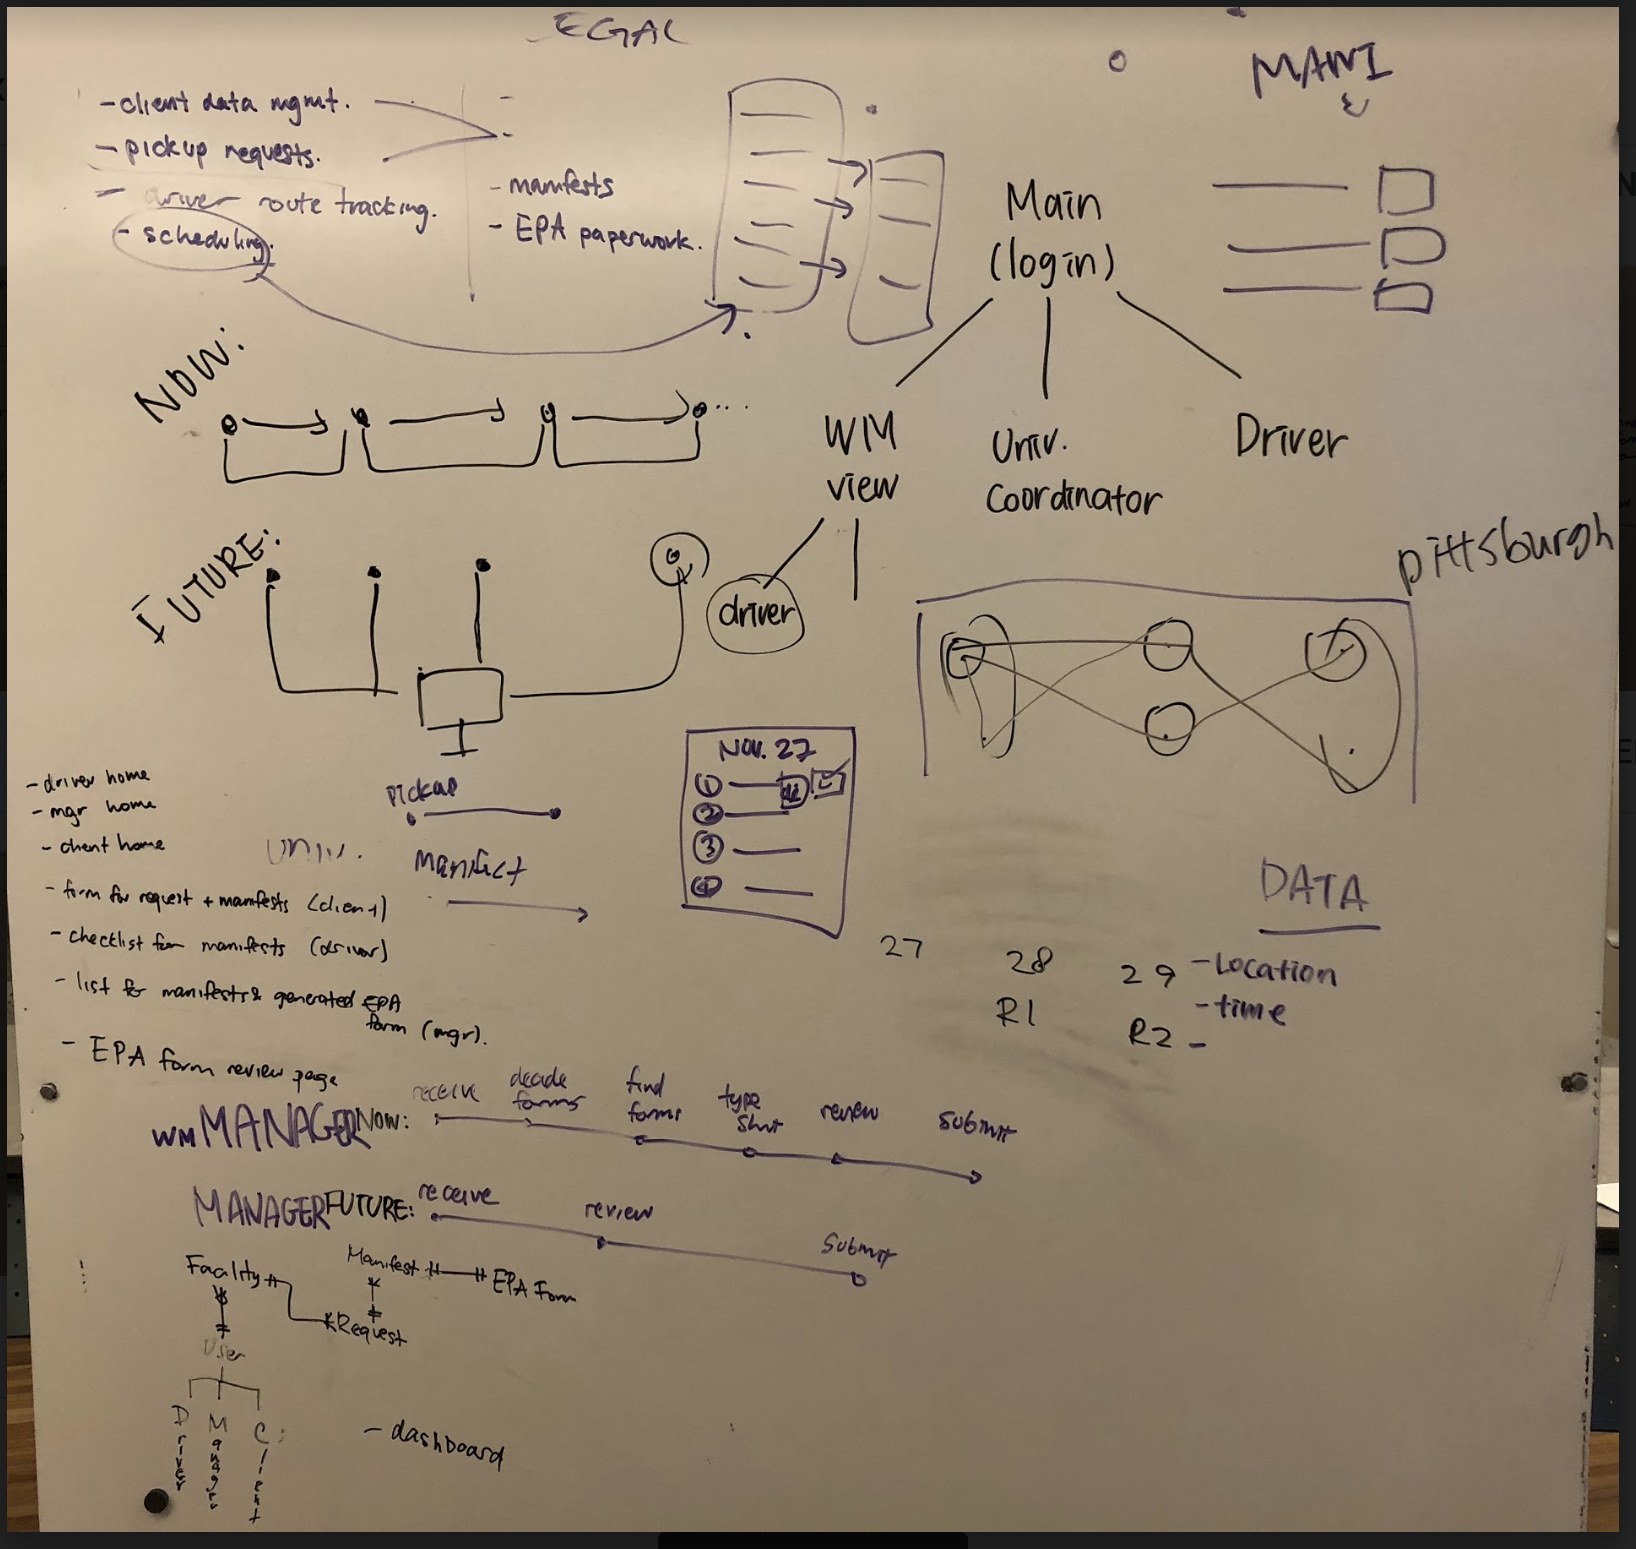 EGAL
MANI
- client data mgmt.
- pickup requests.
- driver route tracking.
- scheduling.
-
-
- manifests
- EPA paperwork.
Main
(login)
WM
view
Univ.
Coordinator
Driver
driver
NOW:
FUTURE:
Pittsburgh
Nov. 27
1
2
3
4
- driver home
- mgr home
- client home
- form for request + manifests (client)
- checklist for manifests (driver)
- list for manifests & generated EPA
form (mgr).
- EPA form review page
Pickup
Univ.
Manifest
DATA
- Location
- time
-
27
28
29
R1
R2
WM MANAGER NOW:
receive
decide
forms
find
forms
type
review
submit
MANAGER FUTURE:
receive
review
submit
Facility
Manifest
EPA Form
Request
User
Driver
Manager
Client
- dashboard